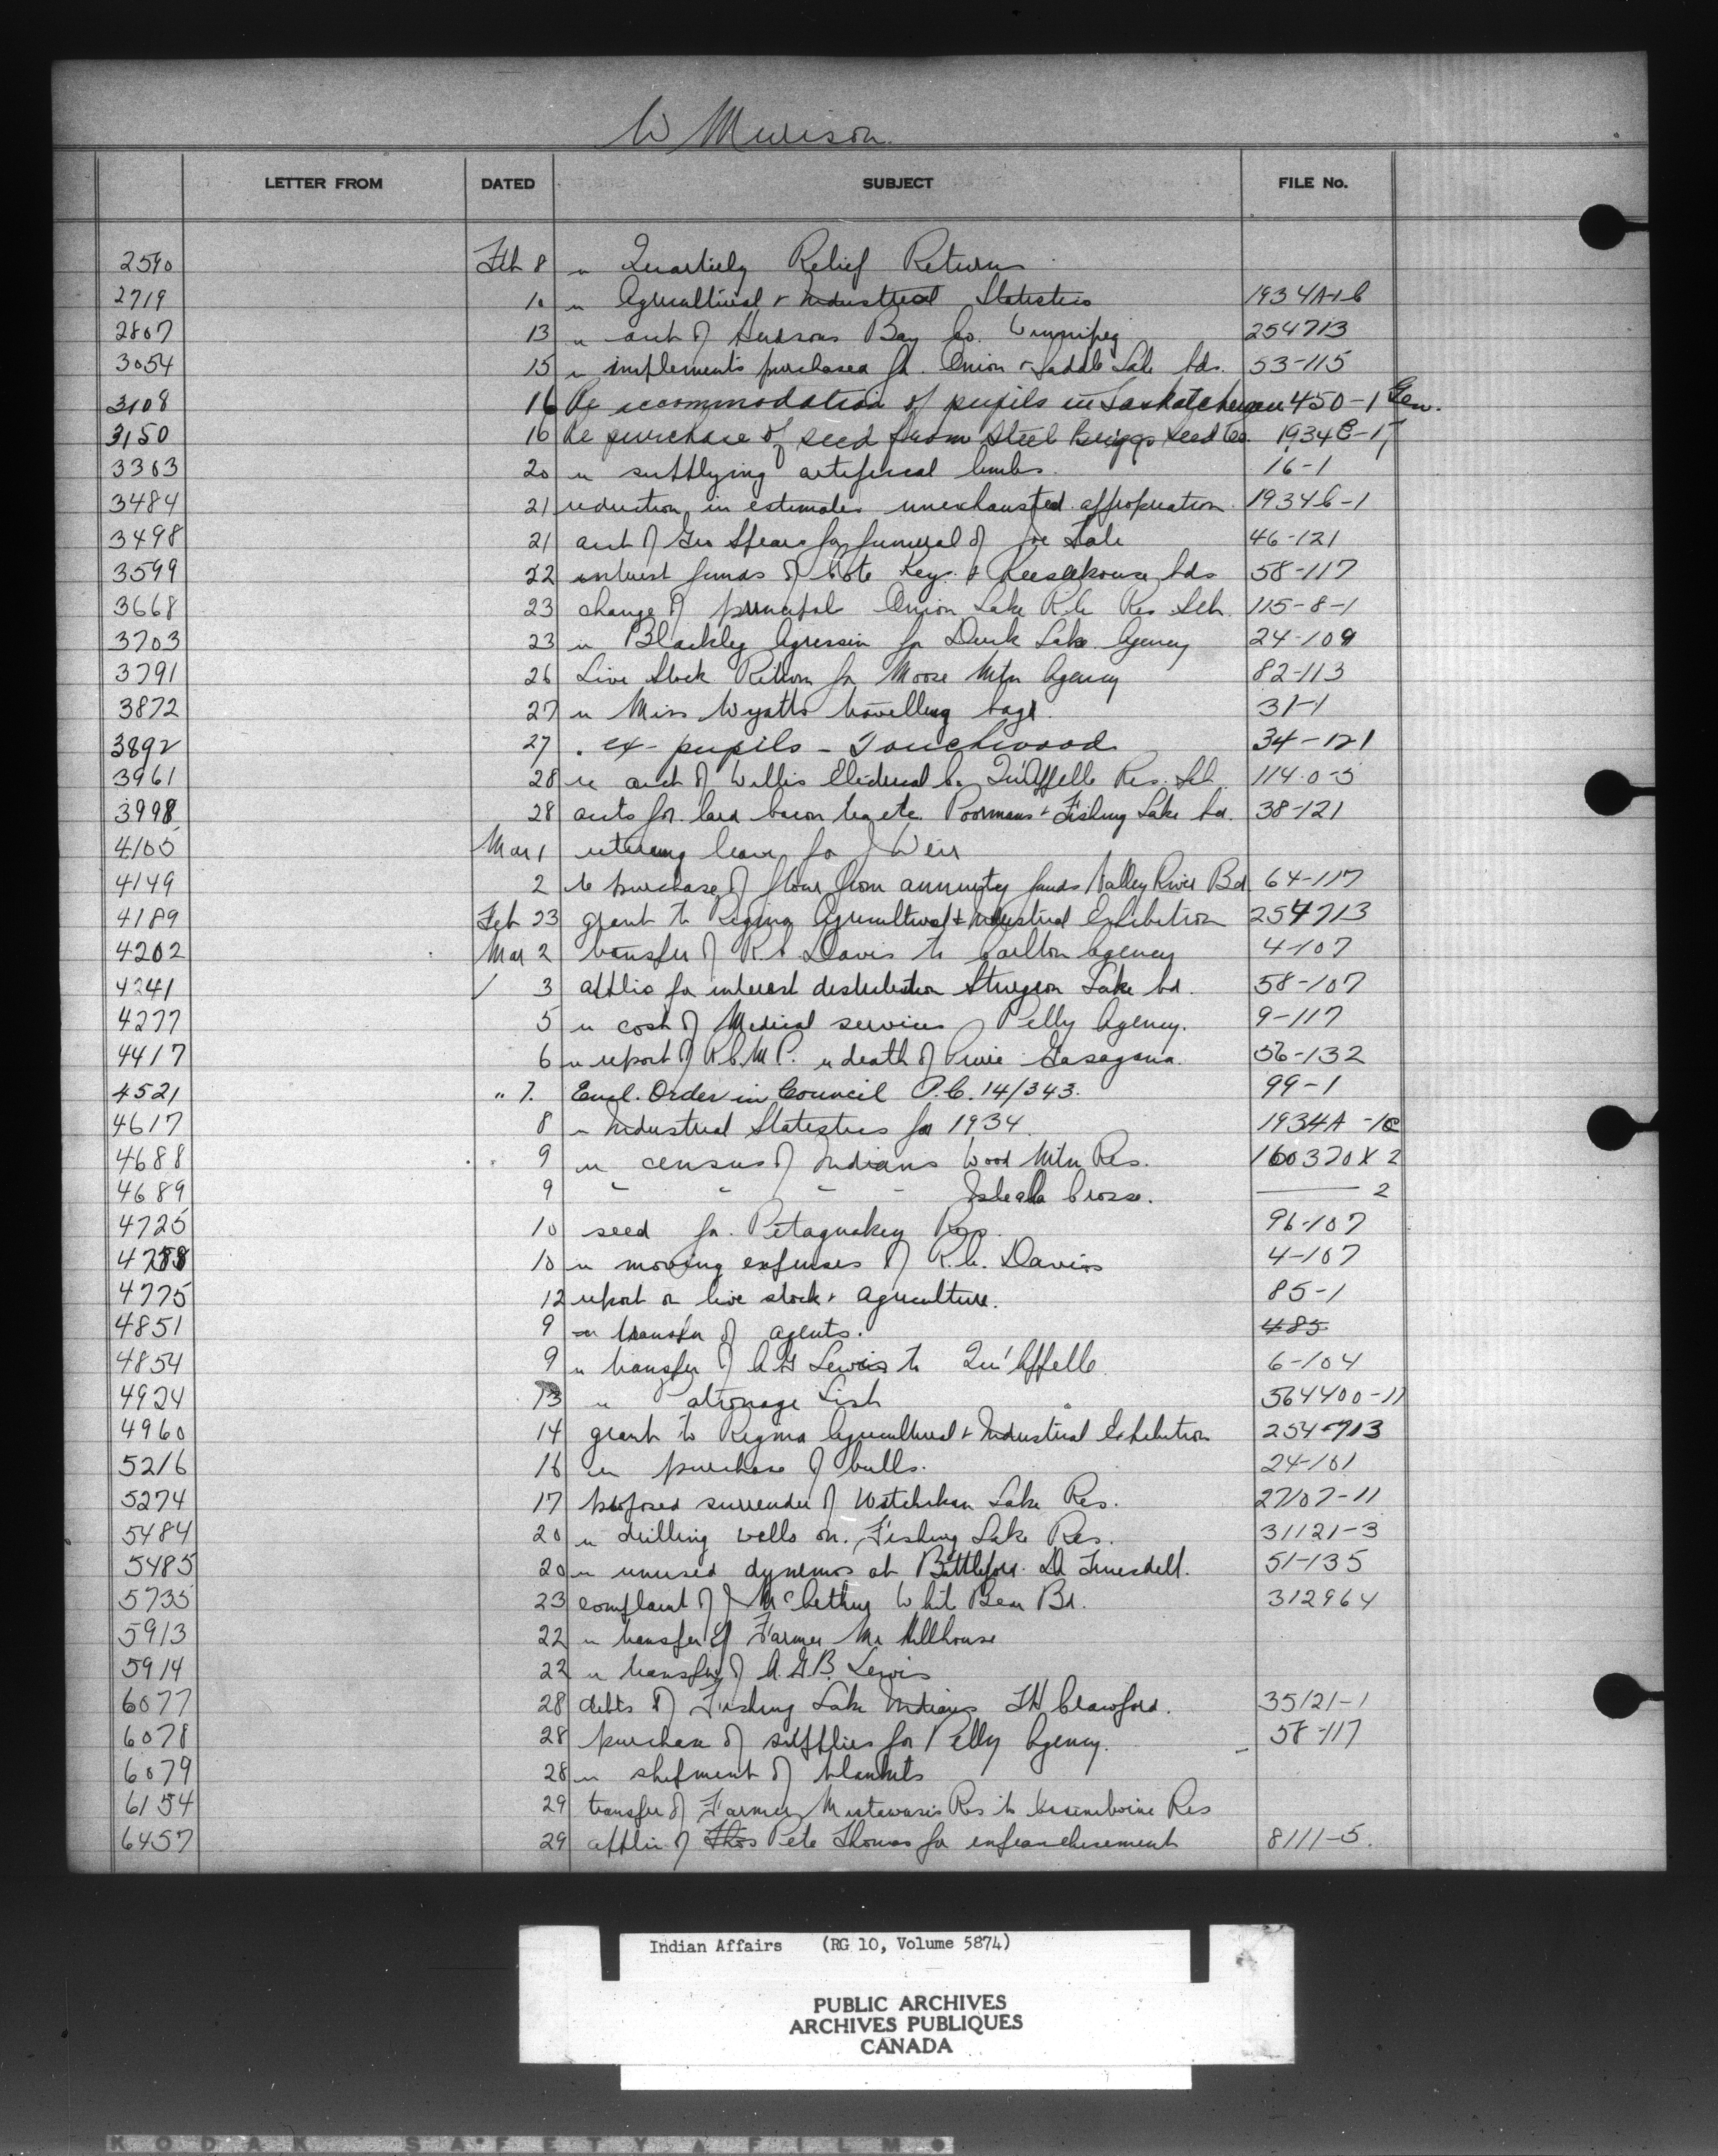 W Murison
LETTER FROM DATED SUBJECT FILE No.
2590 Feb 8 re Quarterly Relief Returns
2719 10 re Agricultural & Industrial Statistics 1934A-1-6
2807 13 re acct of Hudsons Bay Co. Winnipeg 254713
3054 15 re implements purchased for Onion & Saddle Lake bds. 53-115
3108 16 Re accommodation of pupils in Saskatchewan 450-1 Gen.
3150 16 Re purchase of seed from Steele Briggs Seed Co. 1934E-1
3303 20 re supplying artificial limbs 16-1
3484 21 reduction in estimates unexhausted appropriation 1934C-1
3498 21 acct of Geo Spears for funeral of Joe Tale 46-121
3599 22 interest funds of Cote Key & Keesekouse bds 58-117
3668 23 change of principal Onion Lake R.C. Res Sch. 115-8-1
3703 23 re Blackleg Agressin for Duck Lake Agency 24-109
3791 26 Live Stock Return for Moose Mtn Agency 82-113
3872 27 re Miss Wyatts travelling bag 31-1
3892 27 . ex-pupils - Touchwood 34-121
3961 28 re acct of Willis Electrical Co. Qu'Appelle Res. Sch. 114-0-5
3998 28 accts for lard bacon tea etc. Poormans & Fishing Lake bd. 38-121
4105 Mar 1 retiring leave for J Weir
4149 2 re purchase of flour from annuity funds Valley River Bd 64-117
4189 Feb 23 grant to Regina Agricultural & Industrial Exhibition 254713
4202 Mar 2 transfer of R.C. Davis to Carlton Agency 4-107
4241 / 3 applic for interest distribution Sturgeon Lake bd. 58-107
4277 5 re cost of Medical services Pelly Agency. 9-117
4417 6 re report of R.C.M.P. re death of 56-132
4521 " 7. Encl. Order in Council P.C. 14/343. 99-1
4617 8 re Industrial Statistics for 1934 1934A -1C
4688 9 re census of Indians Wood Mtn Res. 160370X2
4689 9 " " " " Isle a la Crosse. —— 2
4725 10 seed for Petaquakey Res. 96-107
4758 10 re moving expenses of R.C. Davis 4-107
4775 12 report on live stock & agriculture. 85-1
4851 9 re transfer of agents. 485
4854 9 re transfer of A G Lewis to Qu'Appelle 6-104
4924 13 re Patronage List 564400-11
4960 14 grant to Regina Agricultural & Industrial Exhibition 254-713
5216 16 re purchase of bulls. 24-101
5274 17 proposed surrender of Witchekan Lake Res. 27107-11
5484 20 re drilling wells on Fishing Lake Res. 31121-3
5485 20 re unused dynamos at Battleford. D. Truesdell. 51-135
5735 23 complaint of J McArthur White Bear Bd. 312964
5913 22 re transfer of Farmer Mr Millhouse
5914 22 re transfer of A.G.B. Lewis
6077 28 debts of Fishing Lake Indians TH Crawford. 35121-1
6078 28 purchase of supplies for Pelly Agency. 58-117
6079 28 re shipment of blankets
6154 29 transfer of Farmer Mistawasis Res to Assiniboine Res
6457 29 applic of Thos Pete Thomas for enfranchisement 8111-5.
Indian Affairs (RG 10, Volume 5874)
PUBLIC ARCHIVES
ARCHIVES PUBLIQUES
CANADA
KODAK SAFETY FILM